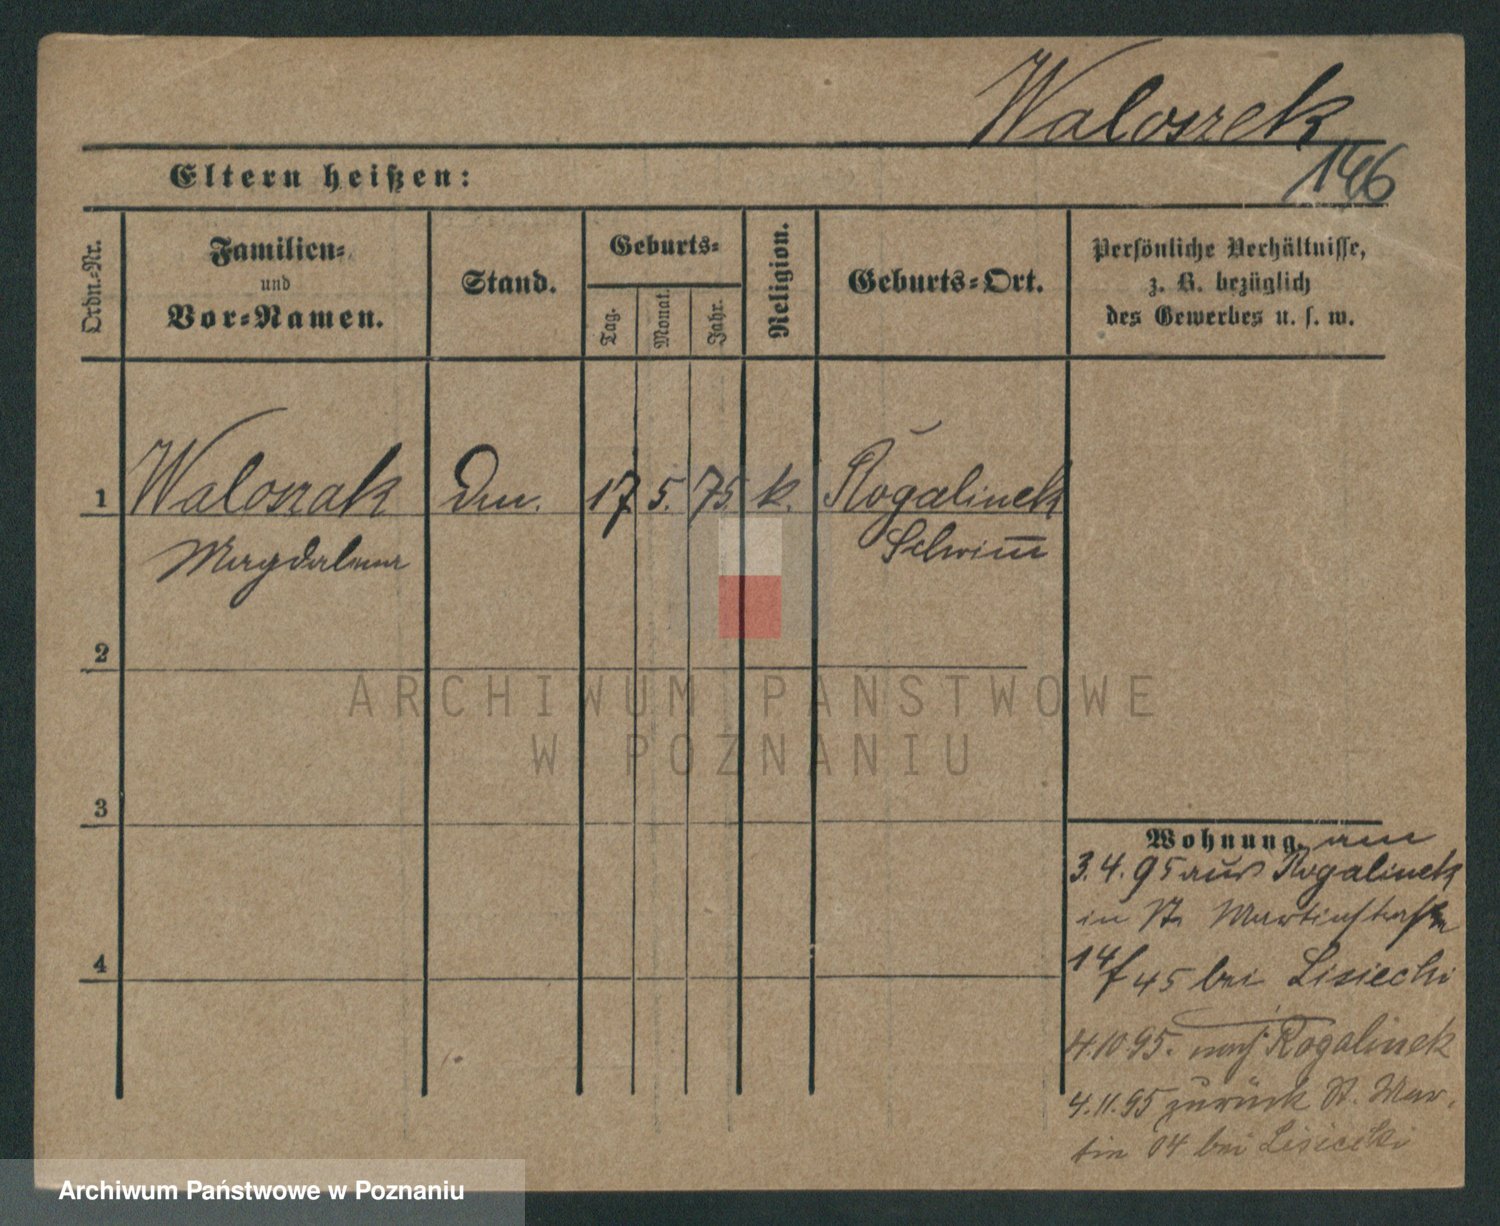 Waloszek
146
Eltern heißen:
Ordn.-Nr.
Familien-
und
Vor-Namen.
Stand.
Geburts-
Tag.
Monat.
Jahr.
Religion.
Geburts-Ort.
Persönliche Verhältnisse,
z. B. bezüglich
des Gewerbes u. s. w.
1 Waloszak Dm. 17. 5. 75. k. Rogalinek
Magdalena Schrimm
2
ARCHIWUM PAŃSTWOWE
W POZNANIU
3
4
Wohnung. am
3.4.95 aus Rogalinek
in St. Martinstraße
bei Lisiecki
4.10.95. nach Rogalinek
4.11.95 zurück St. Mar-
tin 04 bei Lisiecki
Archiwum Państwowe w Poznaniu